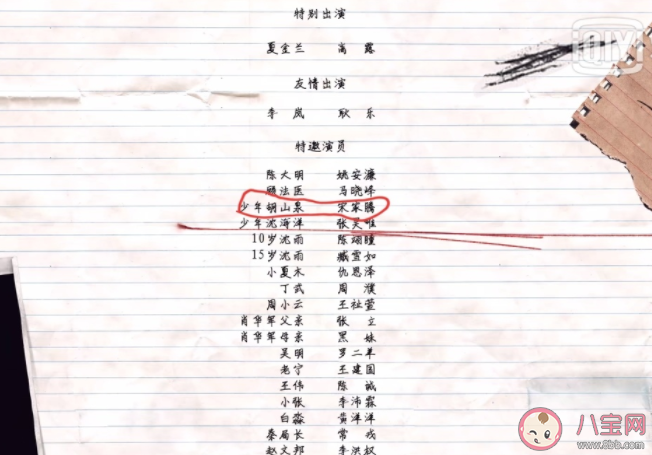 特别出演
iQIYI
夏金兰 高露
友情出演
李岚 耿乐
特邀演员
陈大明 姚安濂
顾法医 马晓峰
少年胡山泉 宋家腾
少年沈海洋 张昊唯
10岁沈雨 陈翊曈
15岁沈雨 臧雪如
小夏木 仇恩泽
丁武 周濮
周小云 王祉萱
肖华军父亲 张立
肖华军母亲 黑妹
吴明 罗二羊
老宁 王建国
王伟 陈诚
小张 李沛霖
白淼 黄洋洋
秦局长 常戎
赵文邦 李洪权
八宝网
www.8bb.com